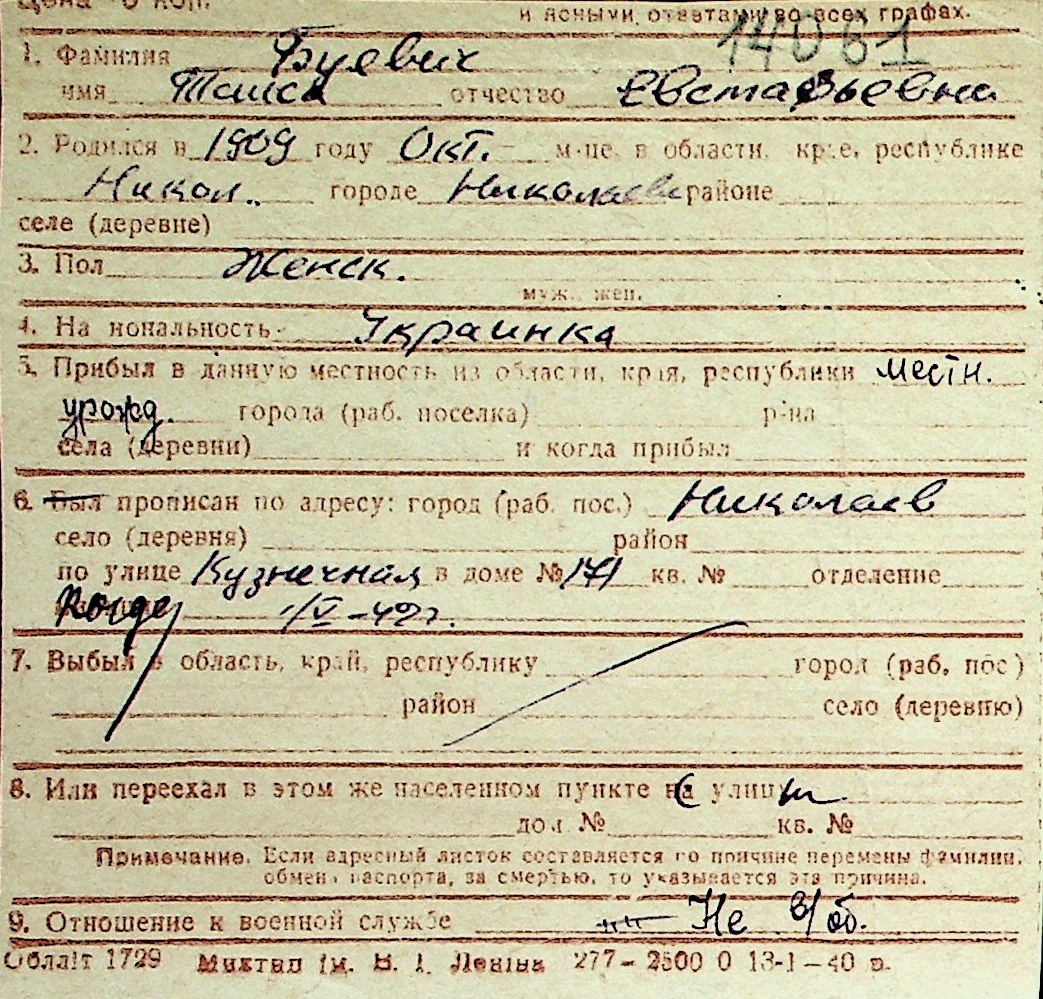 и ясными ответами во всех графах.
14061
1. Фамилия Буевич
имя Таиса отчество Евстафьевна
2. Родился в 1909 году Окт. м-це, в области, крае, республике
Никол. городе Николаеве районе
селе (деревне)
3. Пол Женск.
муж., жен.
4. Национальность Украинка
5. Прибыл в данную местность из области, края, республики местн.
урожд. города (раб. поселка) р-на
села (деревни) и когда прибыл
6. Был прописан по адресу: город (раб. пос.) Николаев
село (деревня) район
по улице Кузнечная в доме № 171 кв. № отделение
1/V-49г.
7. Выбыл в область, край, республику город (раб. пос)
район село (деревню)
8. Или переехал в этом же населенном пункте с улицы
дом № кв. №
Примечание. Если адресный листок составляется по причине перемены фамилии,
обмена паспорта, за смертью, то указывается эта причина.
9. Отношение к военной службе Не в/об.
Обллiт 1729 Миктип iм. В. I. Ленiна 277-2500 0 13-1-40 р.